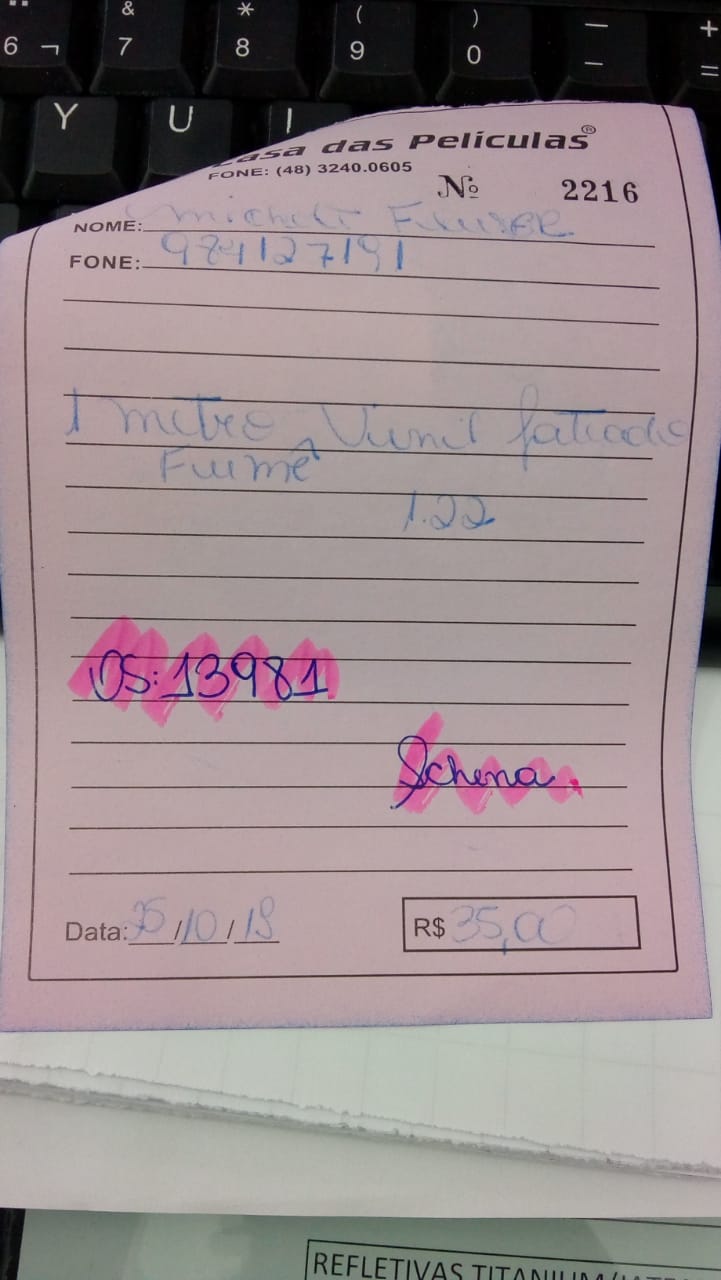 & * ( ) — +
6 ¬ 7 8 9 0 – =
Y U I
Casa das Películas®
FONE: (48) 3240.0605
Nº 2216
NOME:
FONE: 984127191
1 metro Vinil fatiado
Fumê
1.22
OS: 13981
Schena.
Data: 25/10/19 R$ 35,00
REFLETIVAS TITANIUM